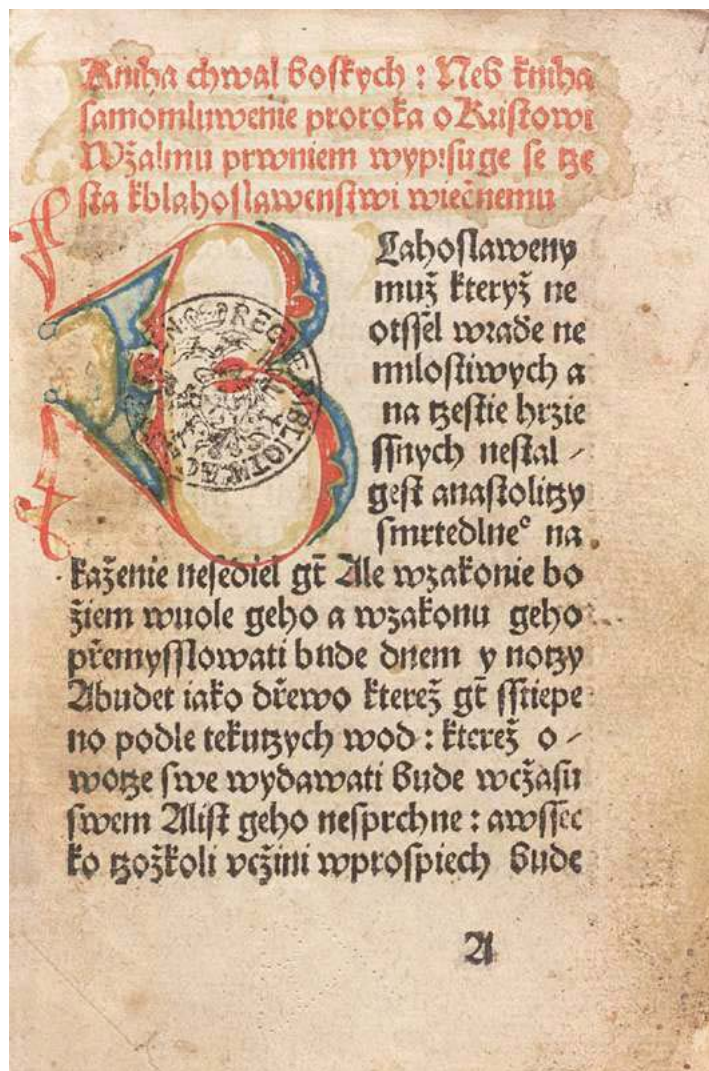 Kniha chwal boſkych : Neb kniha
ſamomluwenie proroka o Kriſtowi
Wžalmu prwniem wypiſuge ſe tze
ſta kblahoſlawenſtwi wiečnemu
BLahoſlaweny
muž kteryž ne
otſſel wradě ne
miloſtiwych a
na tzeſtie hrzie
ſſnych neſtal /
geſt anaſtolitzy
ſmrtedlneº na
kaženie neſediel gt̄ Ale wzakonie bo
žiem wuole geho a wzakonu geho
přemyſſlowati bude dnem y notzy
Abudet iako dřewo kterež gt̄ ſſtiepe
no podle tekutzych wod : kterež o /
wotze ſwe wydawati bude wčžaſu
ſwem Aliſt geho neſprchne : awſſec
ko tzožkoli včžini wproſpiech bude
A
REGIÆ